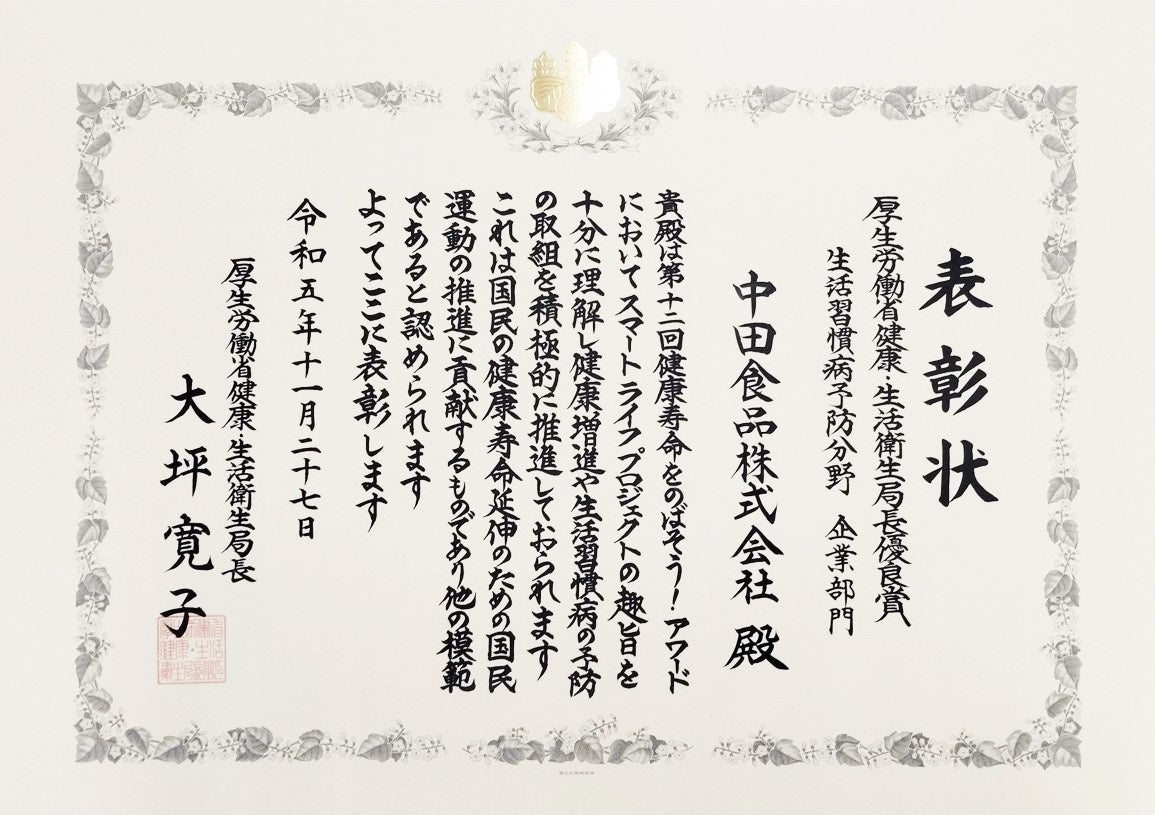 表彰状
厚生労働省健康・生活衛生局長優良賞
生活習慣病予防分野 企業部門
中田食品株式会社 殿
貴殿は第十二回健康寿命をのばそう！アワード
においてスマートライフプロジェクトの趣旨を
十分に理解し健康増進や生活習慣病の予防
の取組を積極的に推進しておられます
これは国民の健康寿命延伸のための国民
運動の推進に貢献するものであり他の模範
であると認められます
よってここに表彰します
令和五年十一月二十七日
厚生労働省健康・生活衛生局長
大坪寛子